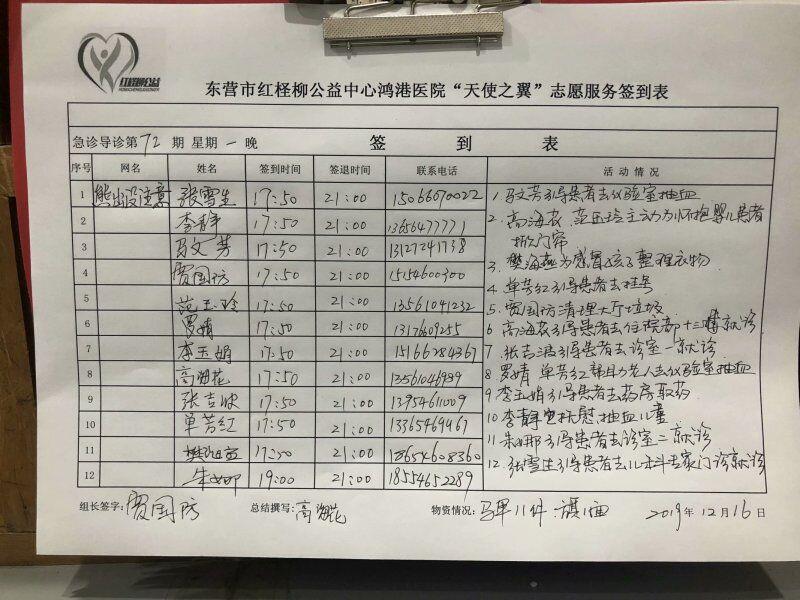 红柽柳公益
东营市红柽柳公益中心鸿港医院“天使之翼”志愿服务签到表
急诊导诊第72期 星期一晚 签到表
序号 网名 姓名 签到时间 签退时间 联系电话 活动情况
1 熊出没注意 张雪生 17:50 21:00 15066070022
2 李静 17:50 21:00 13656477771
3 马文芳 17:50 21:00 13127241738
4 贾国防 17:50 21:00 15154600300
5 范玉玲 17:50 21:00 13561041232
6 罗婧 17:50 21:00 1317
7 李玉娟 17:50 21:00 15166284367
8 高海花 17:50 21:00 13561046939
9 张吉波 17:50 21:00 13954611009
10 单芳红 17:50 21:00 13365469467
11 樊海燕 17:50 21:00 18654608360
12 朱娜 19:00 21:00 18554652289
1. 马文芳引导患者去化验室抽血
2. 高海花、范玉玲主动为怀抱婴儿患者
掀门帘
3. 樊海燕为感冒孩子整理衣物
4. 单芳红引导患者去挂号
5. 贾国防清理大厅垃圾
6 高海花引导患者去住院部十三楼就诊
7 张吉波引导患者去诊室一就诊
8 罗婧 单芳红静目力老人去化验室抽血
9 李玉娟引导患者去药房取药
10 李静 抚慰抽血儿童
11 朱娜引导患者去诊室二就诊
12. 张雪生引导患者去儿科专家门诊就诊
组长签字: 贾国防 总结撰写: 高海花 物资情况: 马甲11件 旗1面 2019年12月16日